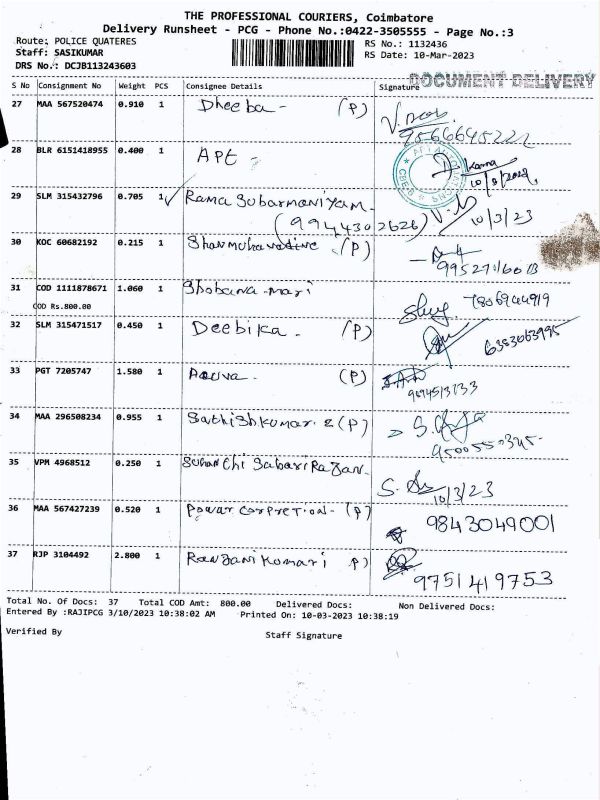 THE PROFESSIONAL COURIERS, Coimbatore
Delivery Runsheet - PCG - Phone No.:0422-3505555 - Page No.:3
Route: POLICE QUATERES
RS No.: 1132436
Staff: SASIKUMAR
RS Date: 10-Mar-2023
DRS No.: DCJB113243603
DOCUMENT DELIVERY
S No Consignment No Weight PCS Consignee Details Signature
27 MAA 567520474 0.910 1 Dheeba - (P)
9566645222
28 BLR 6151418955 0.400 1 APT -
29 SLM 315432796 0.705 1 Rama Subarmaniyam 10/3/23
(9944302626)
30 KOC 60682192 0.215 1 (P)
31 COD 1111878671 1.060 1 Shobana-mari 7806944919
COD Rs.800.00
32 SLM 315471517 0.450 1 Deebika - (P) 6383063995
33 PGT 7205747 1.580 1 (P)
34 MAA 296508234 0.955 1 Sathishkumar (P)
35 VPM 4968512 0.250 1
10/3/23
36 MAA 567427239 0.520 1 Power corpretion - (P) 9843049001
37 RJP 3104492 2.800 1 Ranjani Kumari P) 9751419753
Total No. Of Docs: 37 Total COD Amt: 800.00 Delivered Docs: Non Delivered Docs:
Entered By :RAJIPCG 3/10/2023 10:38:02 AM Printed On: 10-03-2023 10:38:19
Verified By Staff Signature